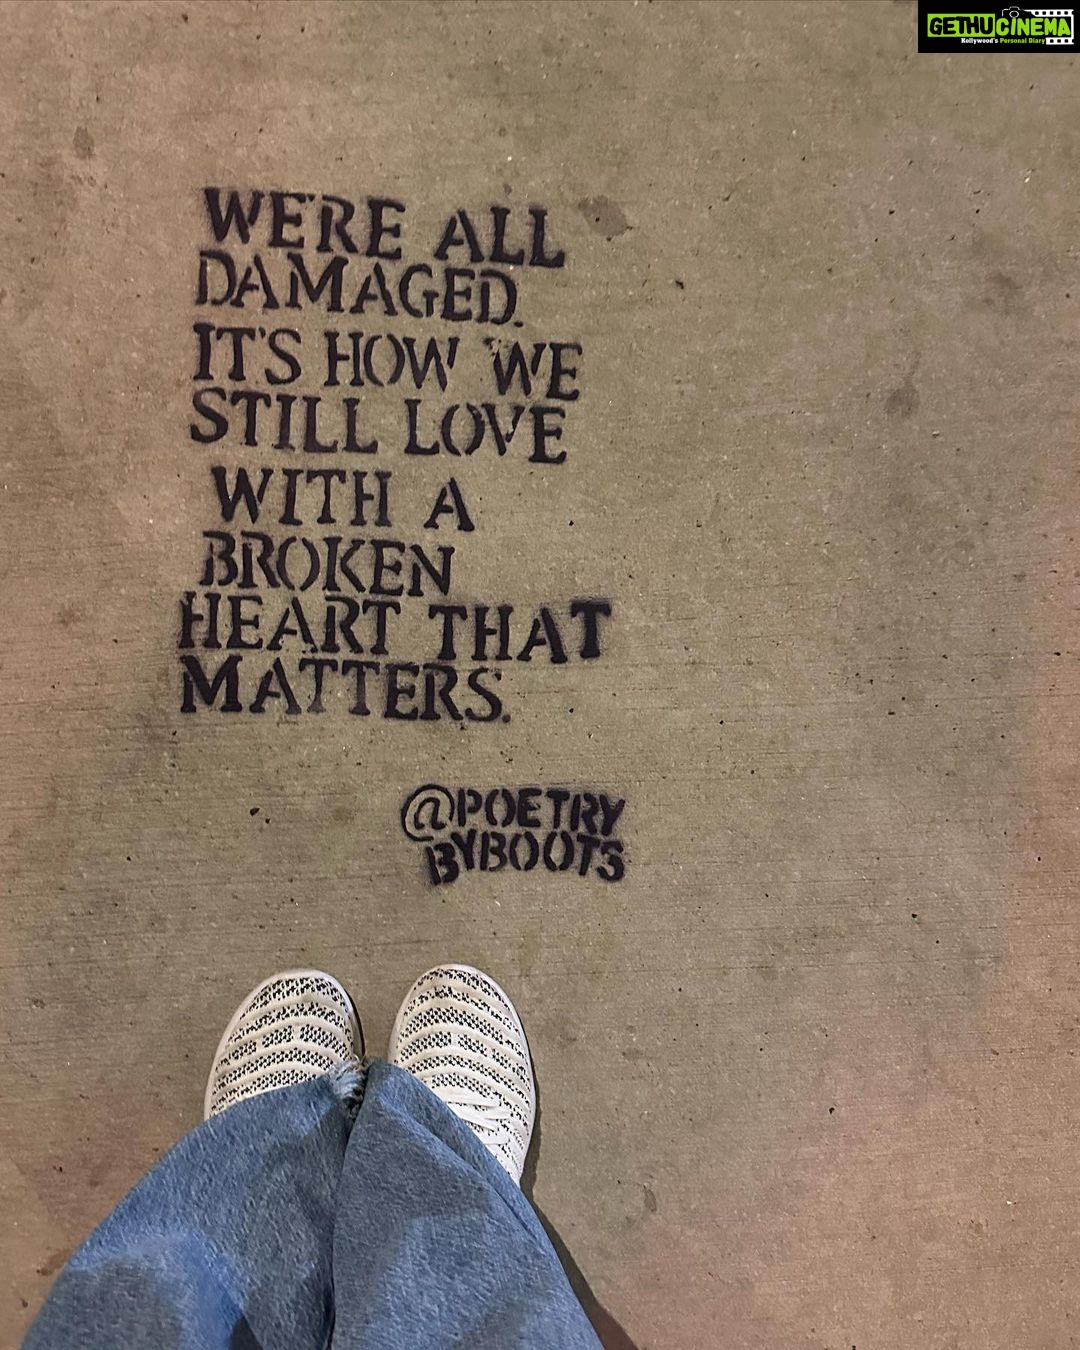 GETHUCINEMA
Kollywood's Personal Diary
WE'RE ALL
DAMAGED.
IT'S HOW WE
STILL LOVE
WITH A
BROKEN
HEART THAT
MATTERS.
@POETRY
BYBOOTS